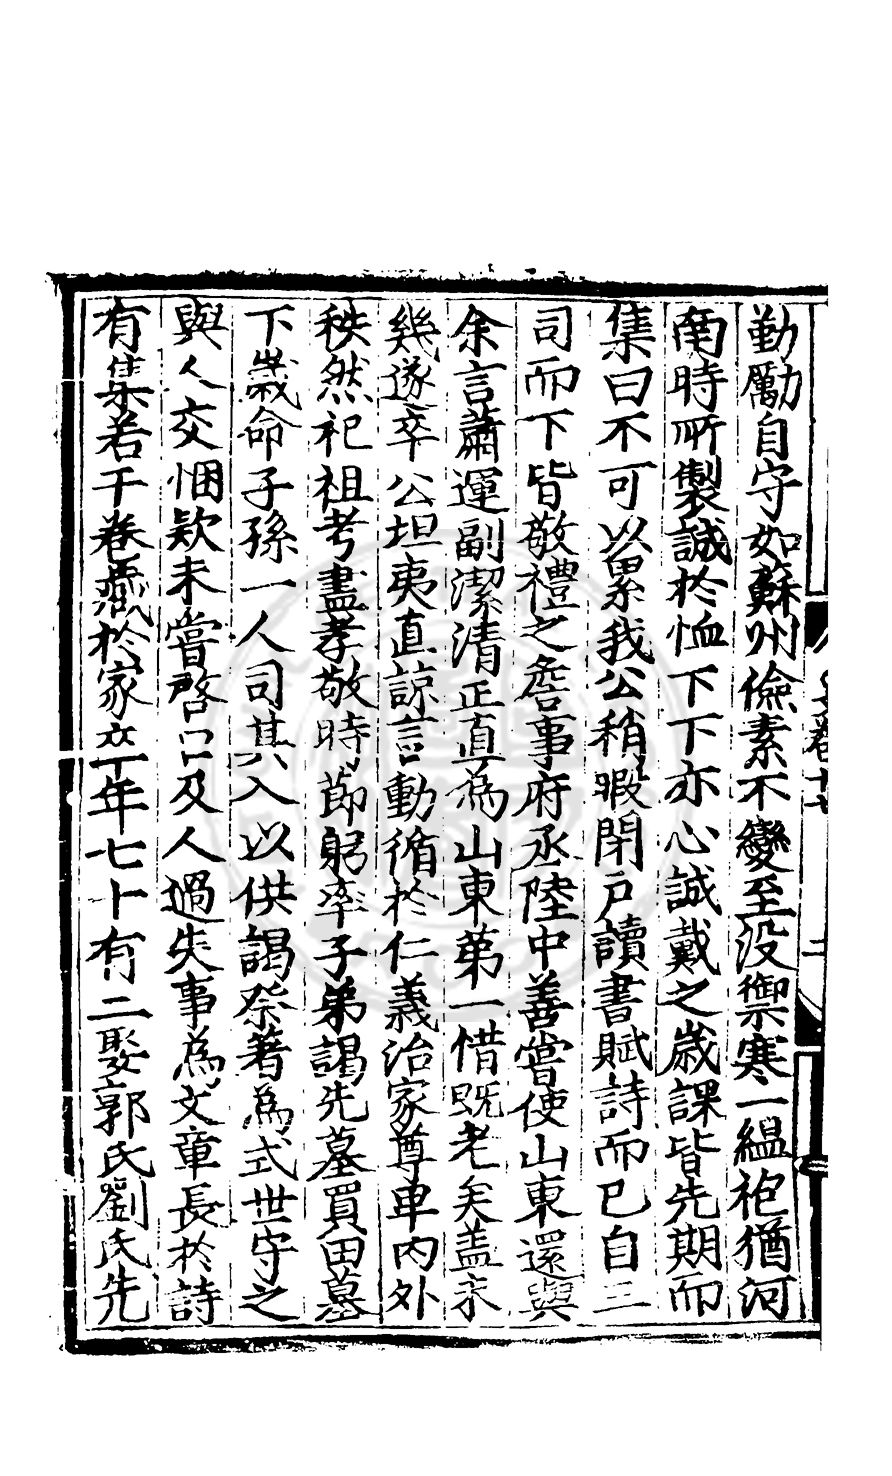 勤勵自守如蘇州儉素不變至没禦寒一緼袍猶河
南時所製誠於恤下下亦心誠戴之歲課皆先期而
集曰不可以累我公稍暇閉戸讀書賦詩而已自三
司而下皆敬禮之詹事府丞陸中善嘗使山東還與
余言蕭運副潔清正直為山東第一惜既老矣盖未
幾遂卒公坦夷直諒言動循於仁義治家尊卑内外
秩然祀祖考盡孝敬時節躬率子弟謁先墓買田墓
下歲命子孫一人司其入以供謁祭著為式世守之
與人交悃欵未嘗啓口及人過失事為文章長於詩
有集若干卷藏於家卒年七十有二娶郭氏劉氏先